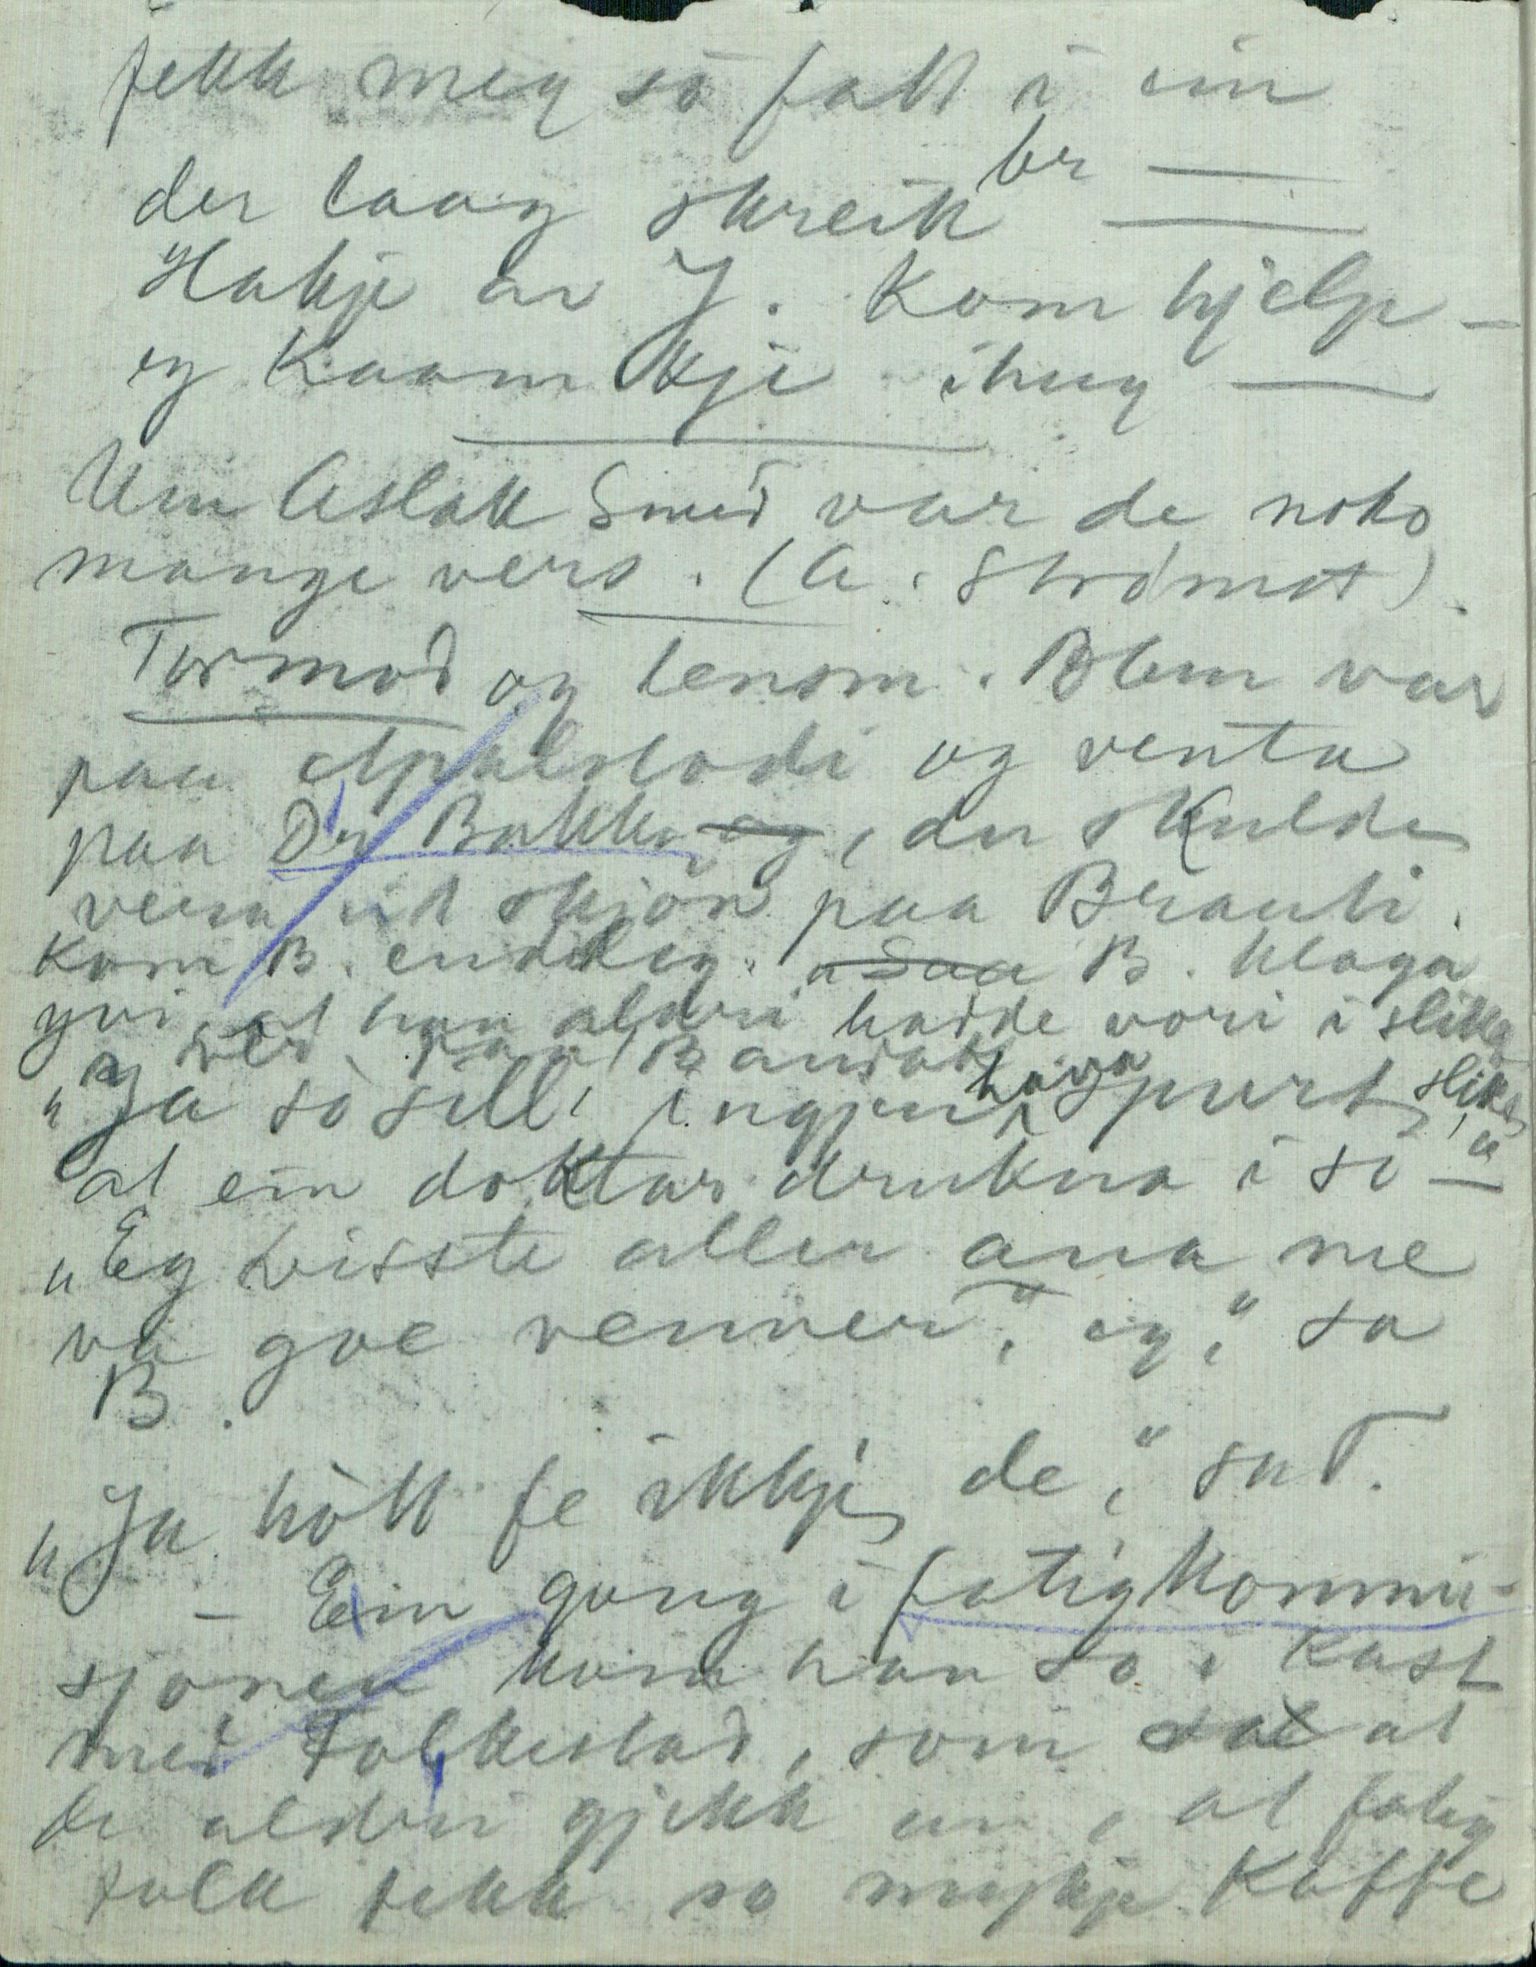 fekk meg so fatt i ein
br —
der laag skreik —
Hakje av J. Kom hjelp —
eg kaam kje ihug —
Um Aslak Smed var de noko
mange vers. (A. Strömot).
Tormod og lensm. Blom var
paa Apalstodi og venta
paa Dr Bakke og, der skulde
vera eit skjön paa Brauti.
Kom B. endeleg. Saa B. klaga
yvi at han aldri hadde vori i slikt
ver paa Bandak
"Ja so sill' ingjen hava spurt slikes,
at ein doktar drukna i sö —"
"Eg visste aller ana me
va goe venner," eg," sa
B.
"Ja hòtt fe ikkje de," sa T.
— Ein gong i fatigkommi-
sjonen kom han so i kast
med Folkestad, som sa at
de aldri gjekk an, at fatig
folk fekk so mykje kaffe